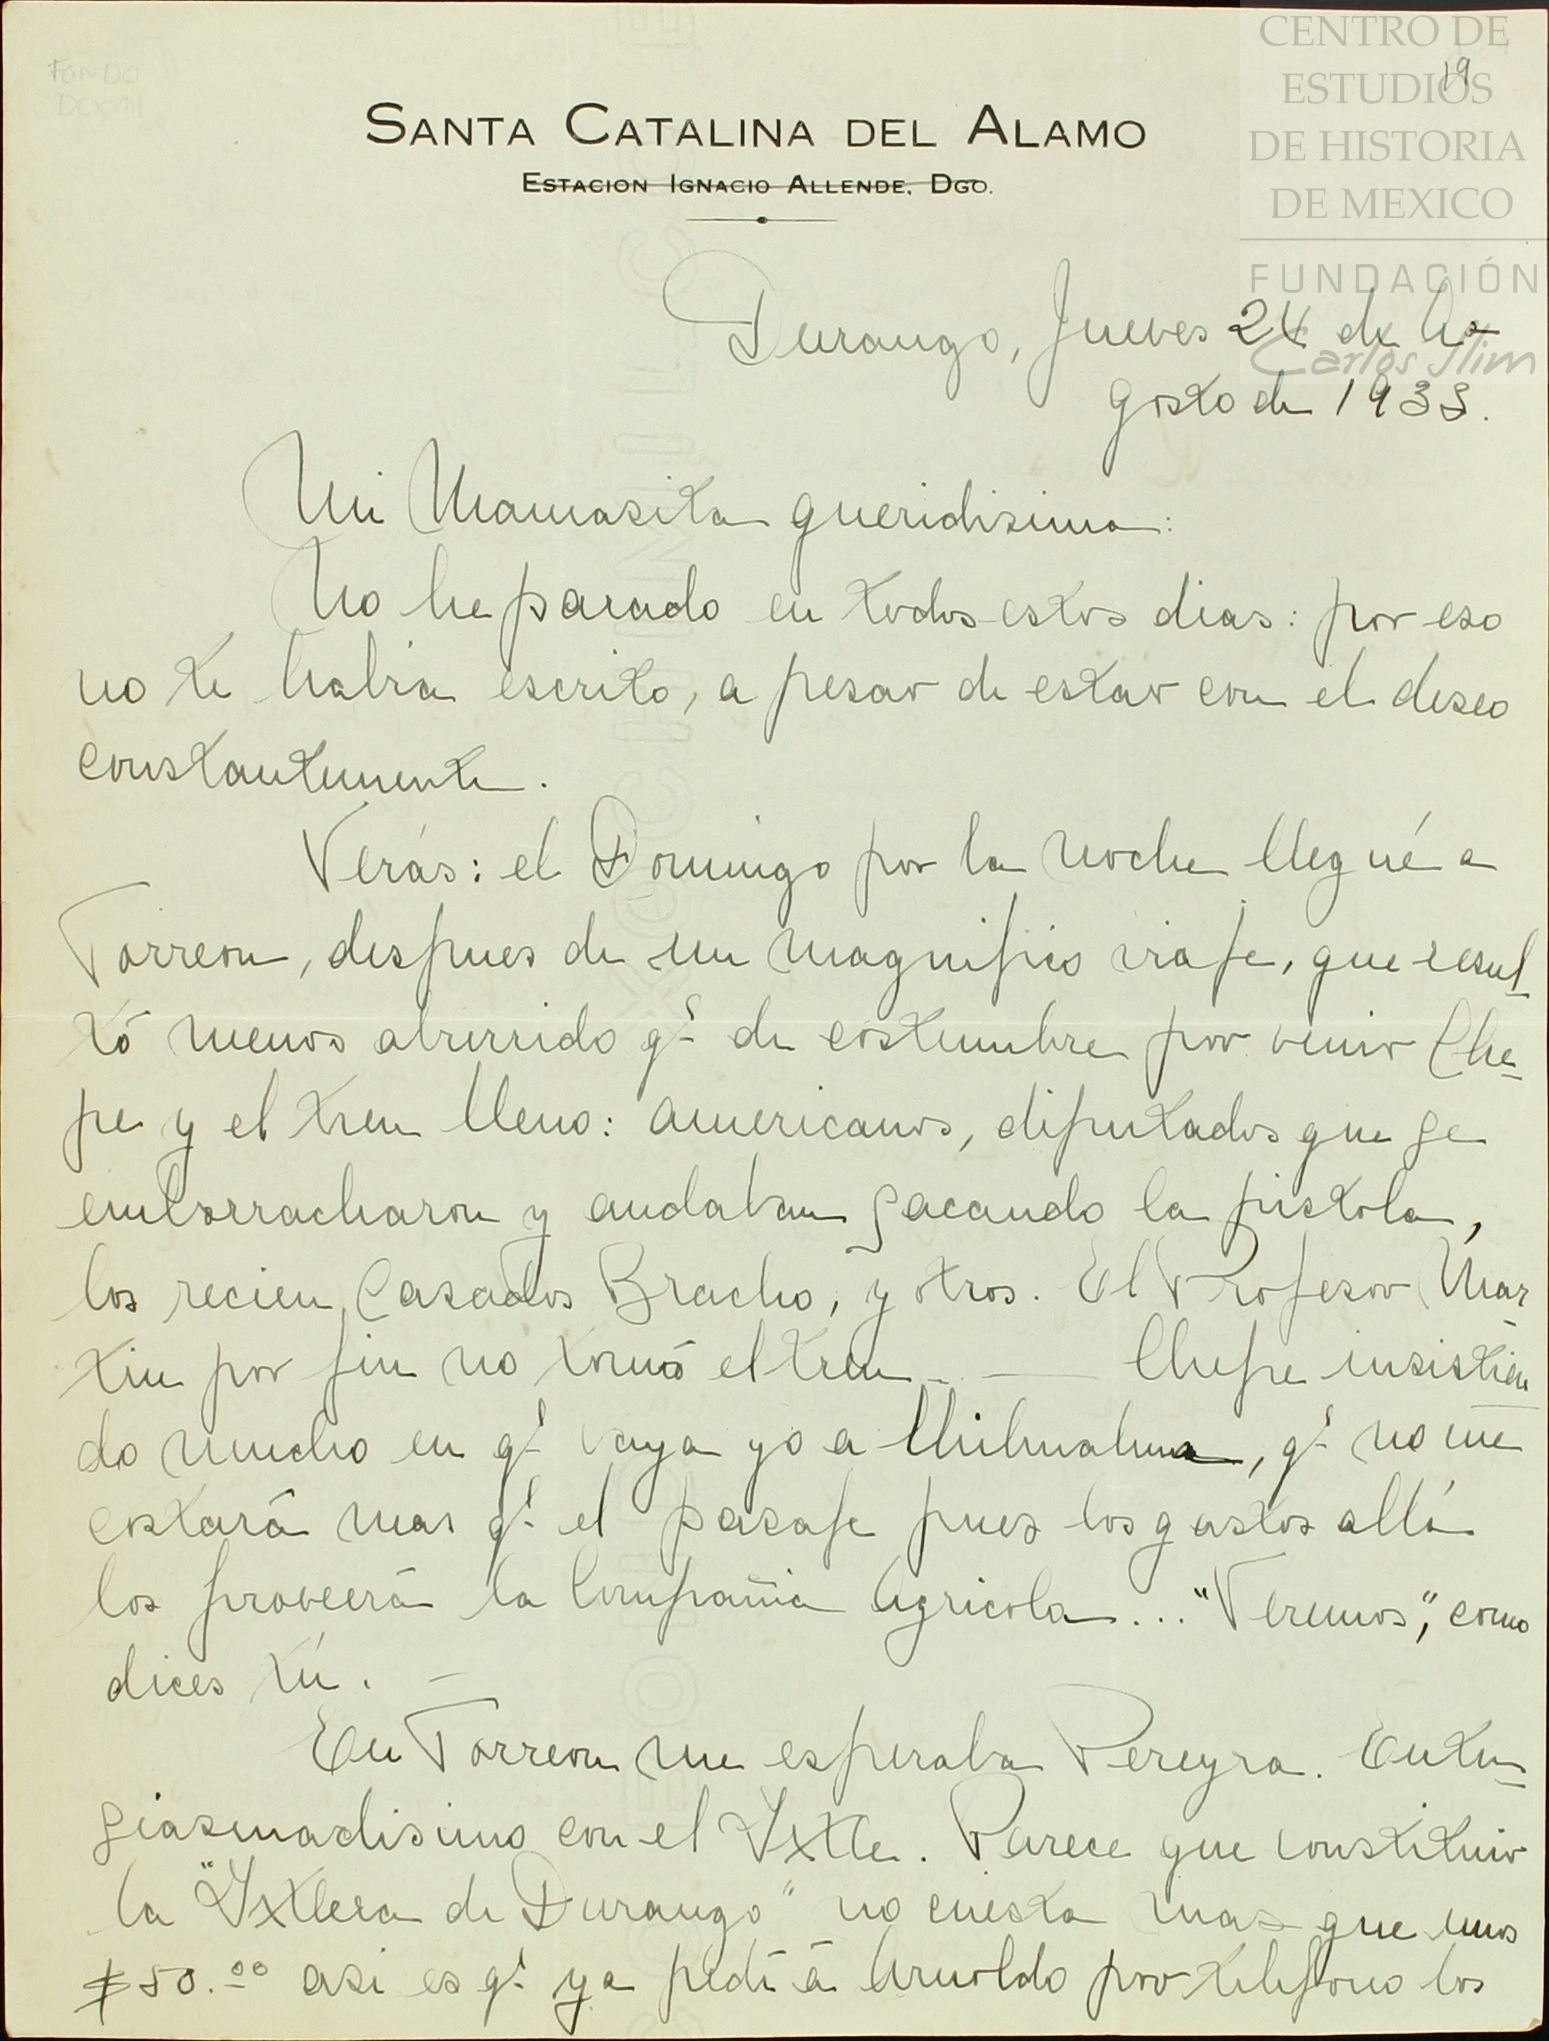 FONDO
DCXVIII
CENTRO DE
ESTUDIOS
DE HISTORIA
DE MEXICO
FUNDACIÓN
Carlos Slim
19
SANTA CATALINA DEL ALAMO
ESTACION IGNACIO ALLENDE, DGO.
Durango, Jueves 24 de A-
gosto de 1933.
Mi Mamasita queridisima:
No he parado en todos estos dias: por eso
no te habia escrito, a pesar de estar con el deseo
constantemente.
Verás: el Domingo por la noche llegué a
Torreon, despues de un magnifico viaje, que resul-
tó menos aburrido qe de costumbre por venir Che-
pe y el tren lleno: americanos, diputados que se
emborracharon y andaban sacando la pistola,
los recien Casados Bracho, y otros. El Profesor Mar-
tin por fin no tomó el tren. — Chepe insistien-
do mucho en qe vaya yo a Chihuahua, qe no me
costará mas qe el pasaje pues los gastos allá
los proveerá la Compañia Agricola... "Veremos", como
dices tú. —
En Torreon me esperaba Pereyra. Entu-
siasmadisimo con el Ixtle. Parece que constituir
la "Ixtlera de Durango" no cuesta mas que unos
$50.00 asi es qe ya pedí á Arnoldo por telefono los